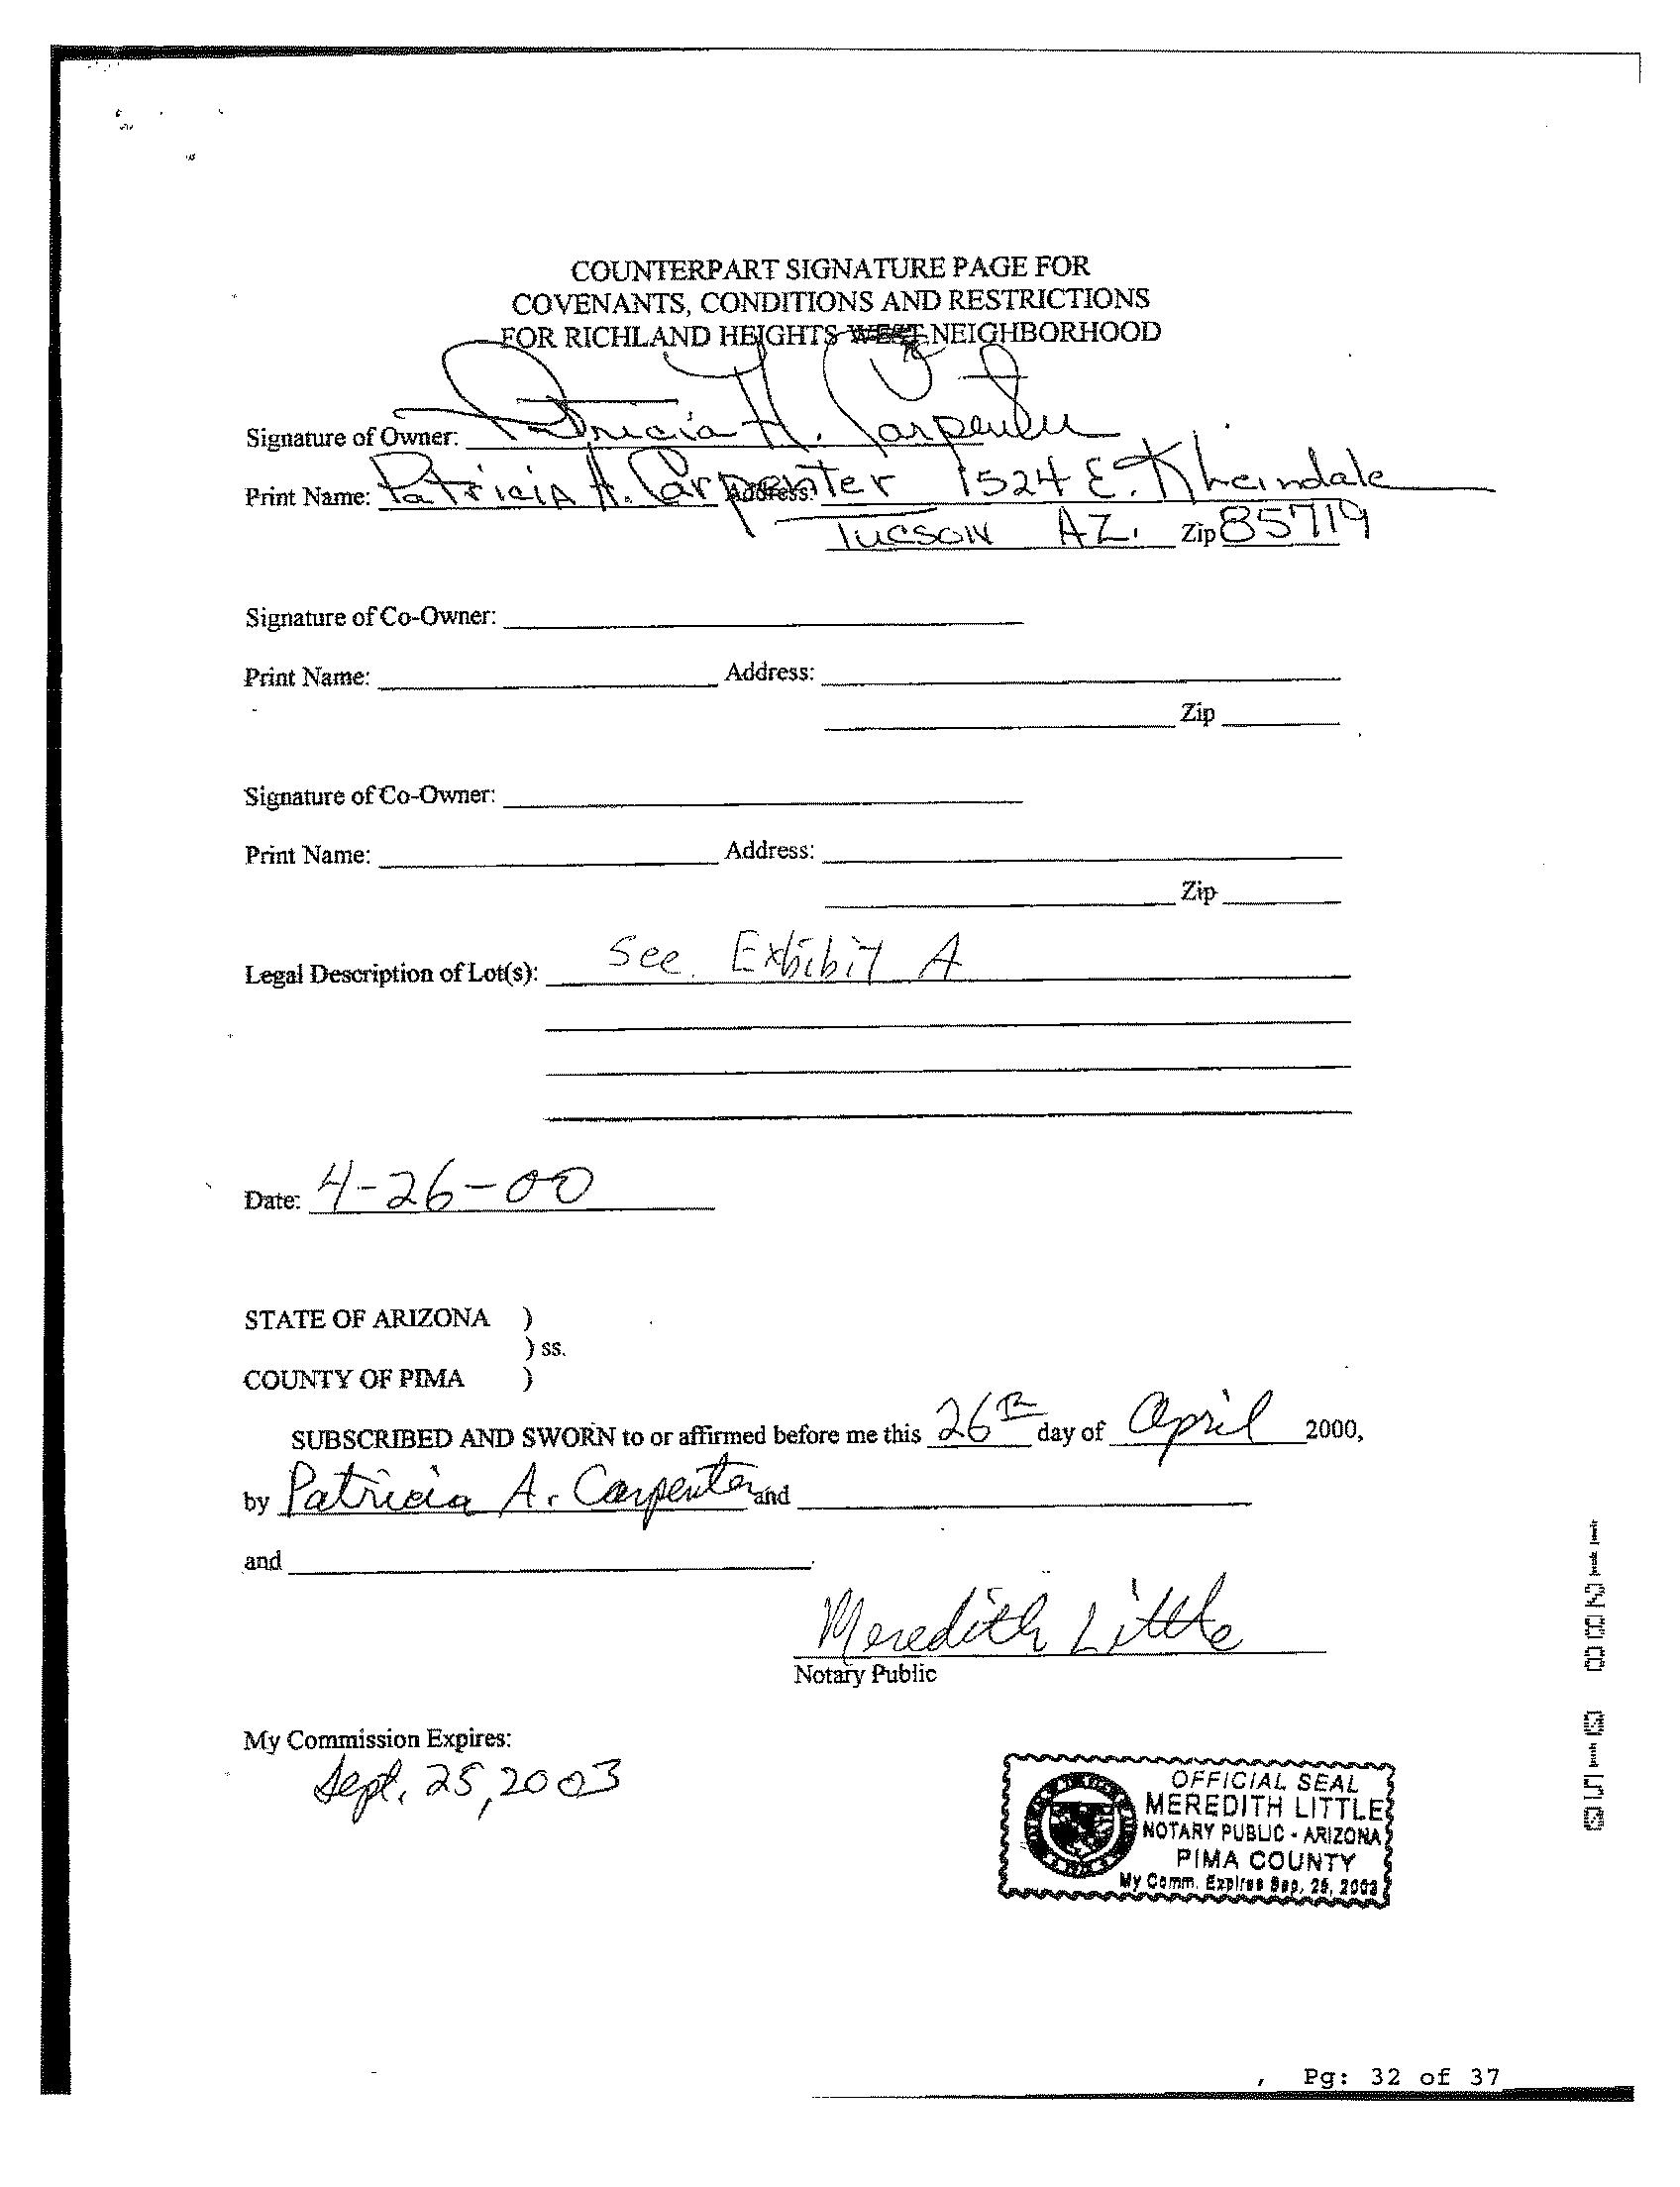 COUNTERPART SIGNATURE PAGE FOR
COVENANTS, CONDITIONS AND RESTRICTIONS
FOR RICHLAND HEIGHTS WEST NEIGHBORHOOD
Signature of Owner: Patricia A. Carpenter
Print Name: Patricia A. Carpenter Address: 1524 E. Kheindale
Tucson AZ. Zip 85719
Signature of Co-Owner:
Print Name: Address:
Zip
Signature of Co-Owner:
Print Name: Address:
Zip
Legal Description of Lot(s): See Exhibit A
Date: 4-26-00
STATE OF ARIZONA )
) ss.
COUNTY OF PIMA )
SUBSCRIBED AND SWORN to or affirmed before me this 26th day of April 2000,
by Patricia A. Carpenter and
and
Meredith Little
Notary Public
My Commission Expires:
Sept. 25, 2003
OFFICIAL SEAL
MEREDITH LITTLE
NOTARY PUBLIC - ARIZONA
PIMA COUNTY
My Comm. Expires Sep. 25, 2003
Pg: 32 of 37